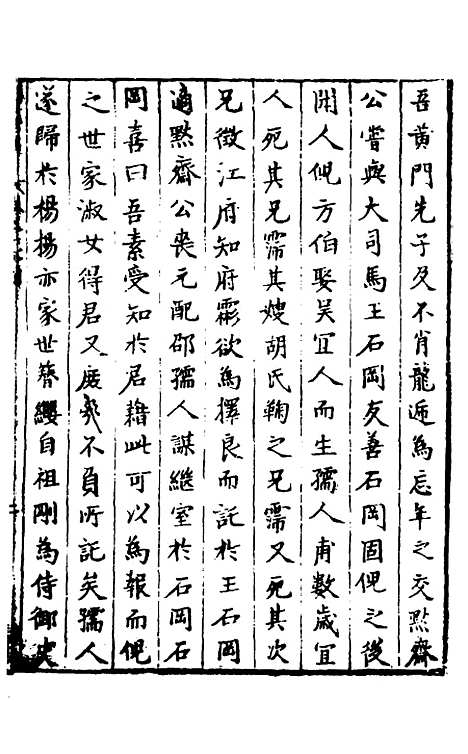 吾黄門先子及不肖龍遞為忘年之交默齋
公嘗與大司馬王石岡友善石岡固俔之後
開人俔方伯娶吴宜人而生孺人甫數歲宜
人死其兄霈其嫂胡氏鞠之兄霈又死其次
兄徵江府知府霦欲為擇良而託於王石岡
適默齋公喪元配邵孺人謀繼室於石岡石
岡喜曰吾素受知於君藉此可以為報而俔
之世家淑女得君又度幾不負所託矣孺人
遂歸於楊楊亦家世簪纓自祖剛為侍御史